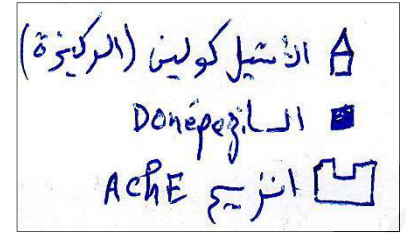 الأستيل كولين (الركيزة)
الـ Donépezil
انزيم AChE